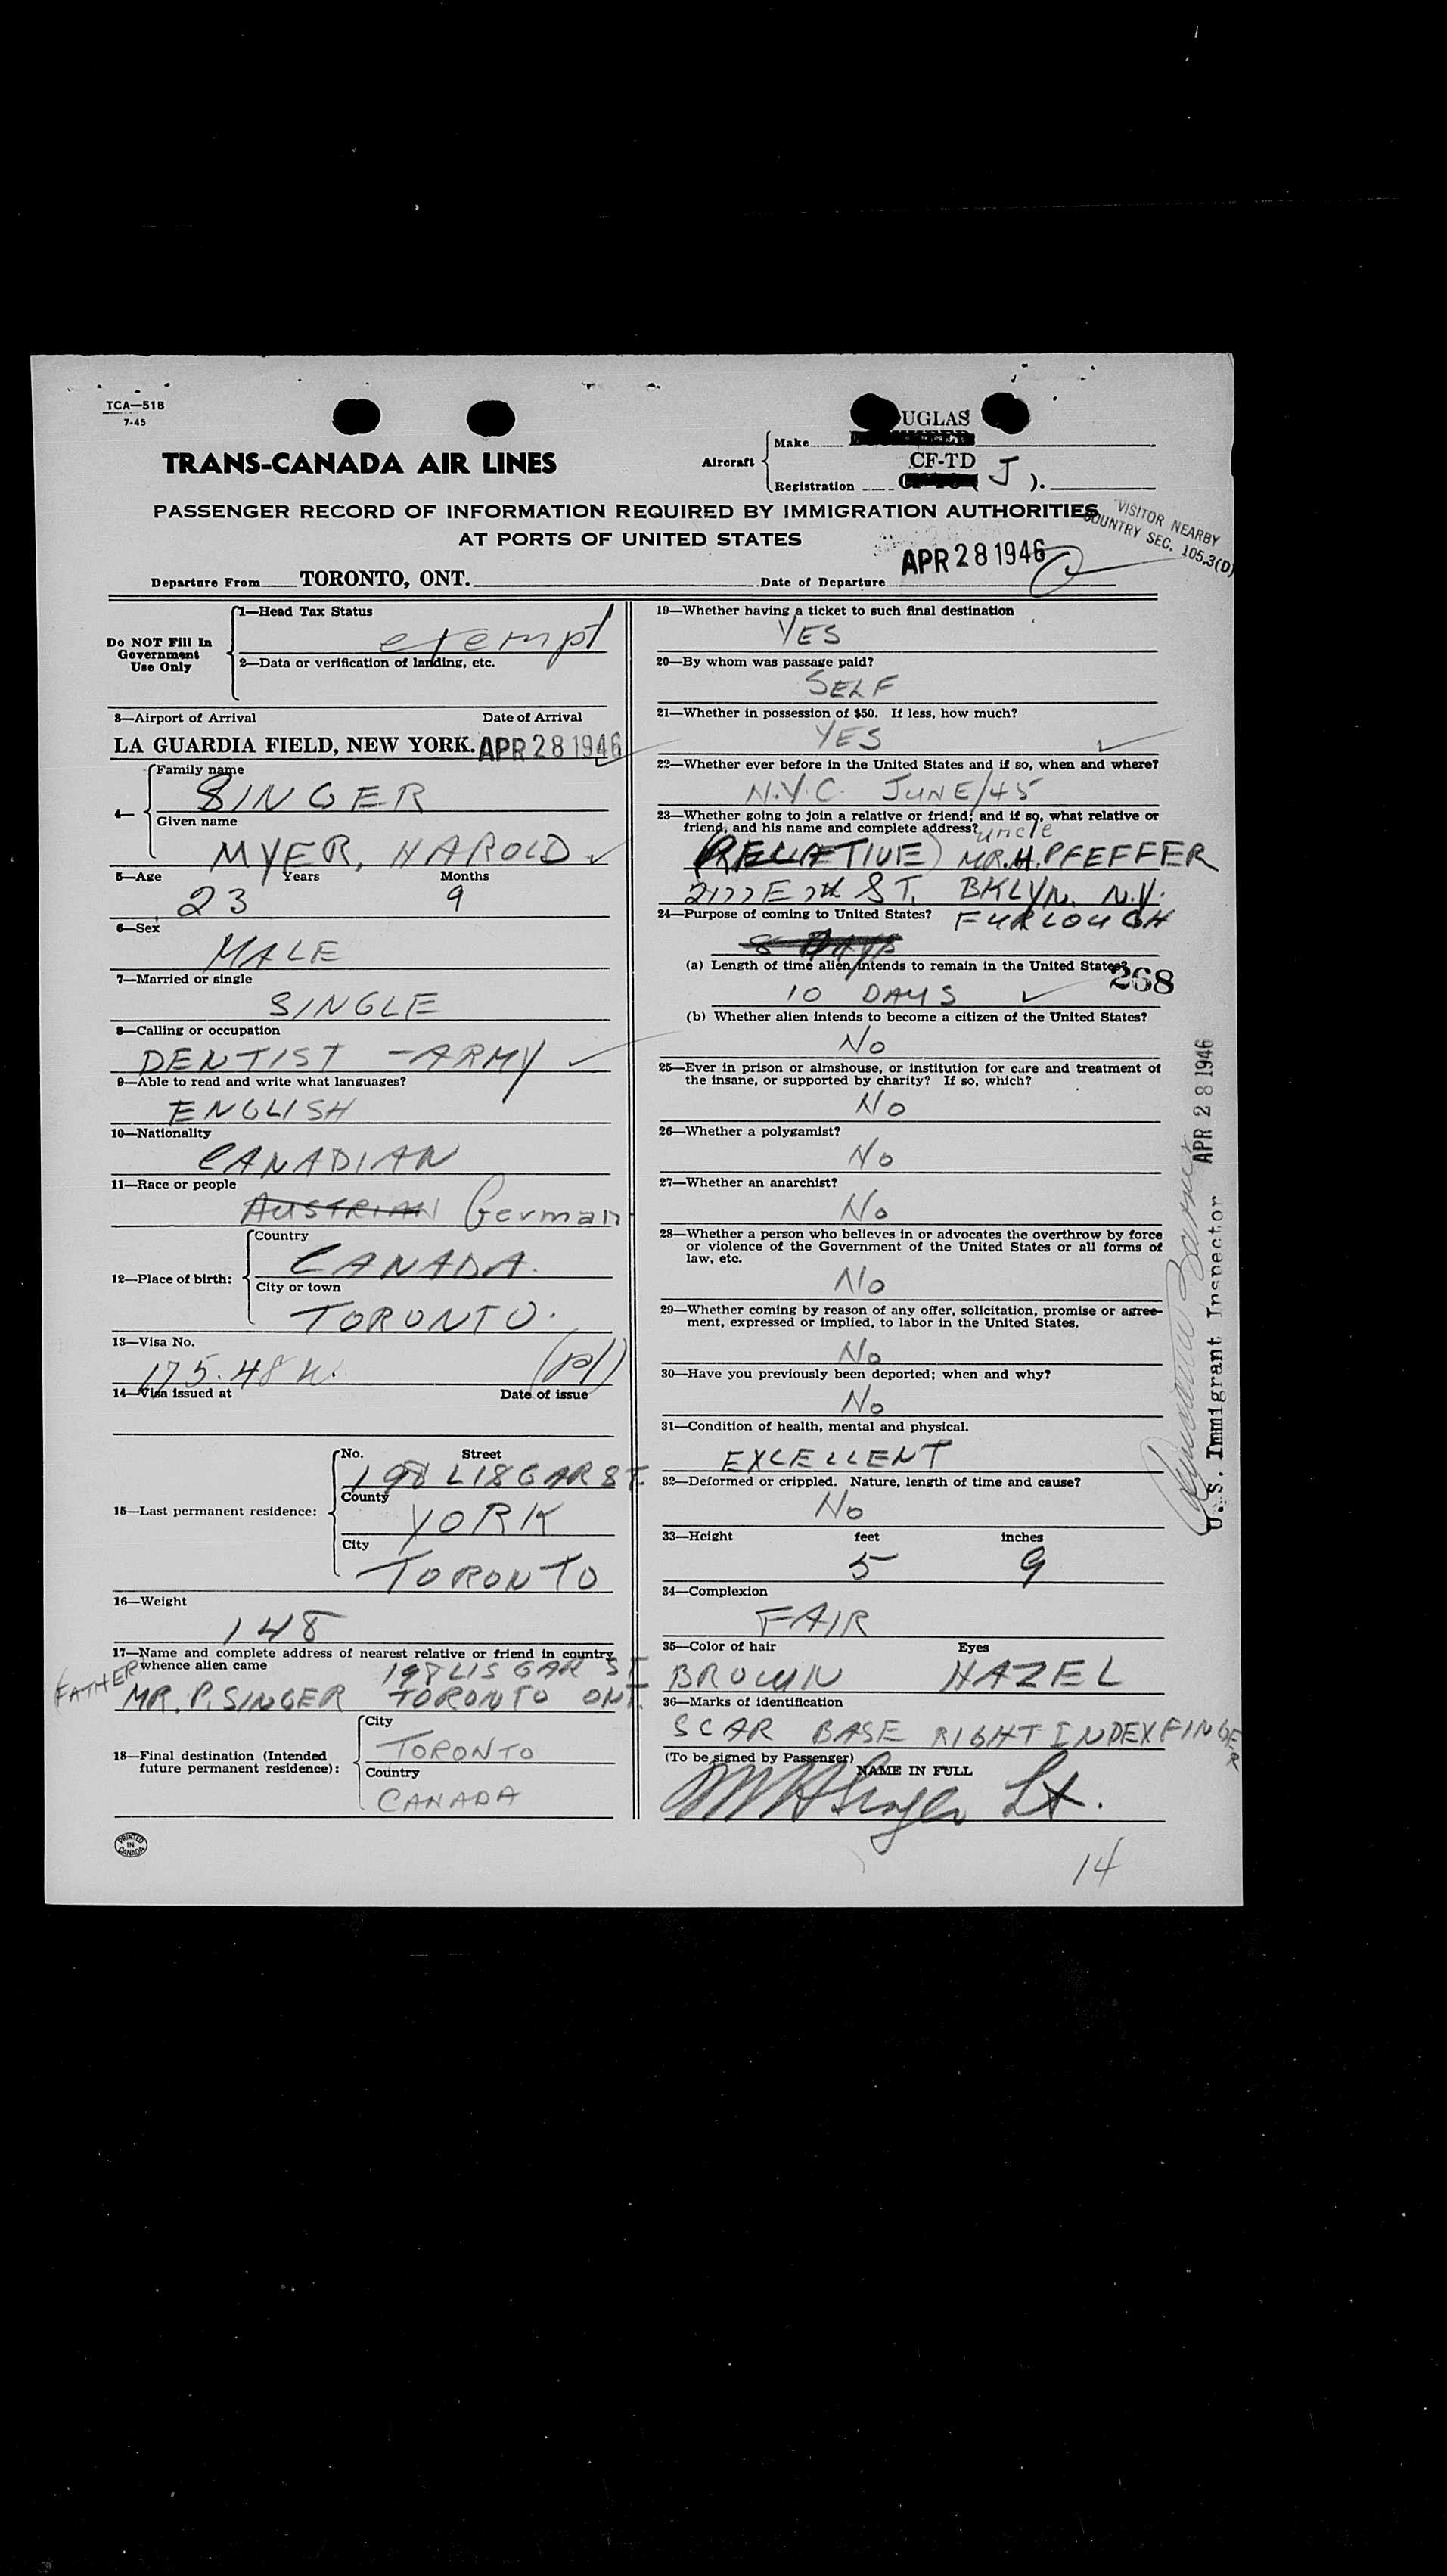 TCA—518
7-45
TRANS-CANADA AIR LINES
Aircraft
Make
UGLAS
Registration
CF-TD
J ).
PASSENGER RECORD OF INFORMATION REQUIRED BY IMMIGRATION AUTHORITIES
AT PORTS OF UNITED STATES
VISITOR NEARBY
COUNTRY SEC. 105.3(D)
Departure From TORONTO, ONT. Date of Departure APR 28 1946
Do NOT Fill In
Government
Use Only
1—Head Tax Status
exempt
2—Data or verification of landing, etc.
3—Airport of Arrival Date of Arrival
LA GUARDIA FIELD, NEW YORK. APR 28 1946
4—
Family name
SINGER
Given name
MYER, HAROLD
5—Age Years Months
23 9
6—Sex
MALE
7—Married or single
SINGLE
8—Calling or occupation
DENTIST - ARMY
9—Able to read and write what languages?
ENGLISH
10—Nationality
CANADIAN
11—Race or people
AUSTRIAN German
12—Place of birth:
Country
CANADA.
City or town
TORONTO.
13—Visa No.
175.48
14—Visa issued at Date of issue
15—Last permanent residence:
No. Street
198 LISGAR ST.
County
YORK
City
TORONTO
16—Weight
148
17—Name and complete address of nearest relative or friend in country
whence alien came
198 LISGAR ST
FATHER
MR. P. SINGER TORONTO ONT.
18—Final destination (Intended
future permanent residence):
City
TORONTO
Country
CANADA
PRINTED
IN
CANADA
19—Whether having a ticket to such final destination
YES
20—By whom was passage paid?
SELF
21—Whether in possession of $50. If less, how much?
YES
22—Whether ever before in the United States and if so, when and where?
N.Y.C. JUNE/45
23—Whether going to join a relative or friend; and if so, what relative or
friend, and his name and complete address?
uncle
(RELATIVE) MR. H. PFEFFER
ST. BKLYN. N.Y.
24—Purpose of coming to United States? FURLOUGH
8 DAYS
(a) Length of time alien intends to remain in the United States?
268
10 DAYS
(b) Whether alien intends to become a citizen of the United States?
No
25—Ever in prison or almshouse, or institution for care and treatment of
the insane, or supported by charity? If so, which?
No
26—Whether a polygamist?
No
27—Whether an anarchist?
No
28—Whether a person who believes in or advocates the overthrow by force
or violence of the Government of the United States or all forms of
law, etc.
No
29—Whether coming by reason of any offer, solicitation, promise or agree-
ment, expressed or implied, to labor in the United States.
No
30—Have you previously been deported; when and why?
No
31—Condition of health, mental and physical.
EXCELLENT
32—Deformed or crippled. Nature, length of time and cause?
No
33—Height feet inches
5 9
34—Complexion
FAIR
35—Color of hair Eyes
BROWN HAZEL
36—Marks of identification
SCAR BASE RIGHT INDEX FINGER
(To be signed by Passenger) NAME IN FULL
M H Singer Lt.
14
U.S. Immigrant Inspector
APR 28 1946